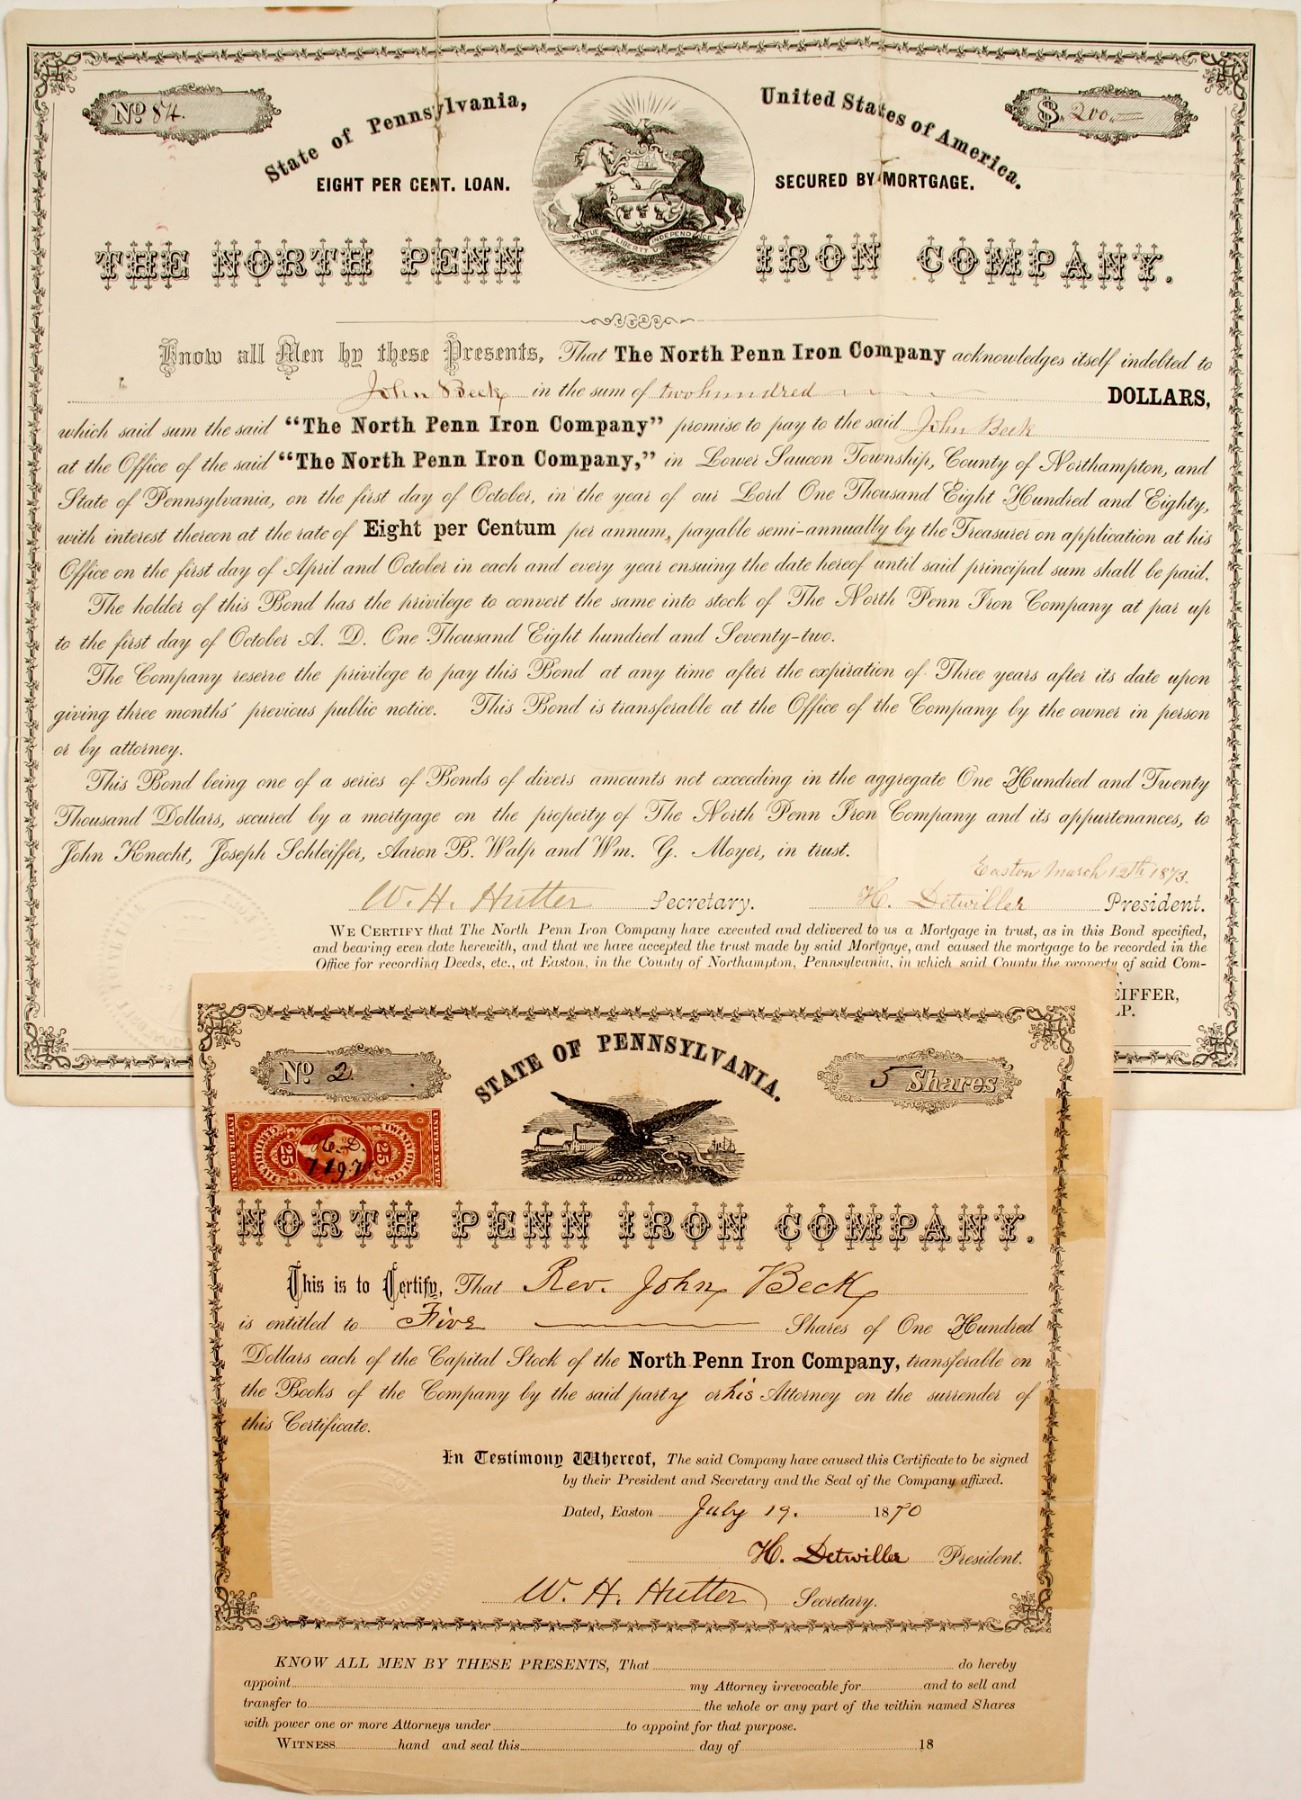 No 84.
State of Pennsylvania,
United States of America.
$ 200.—
EIGHT PER CENT. LOAN.
SECURED BY MORTGAGE.
VIRTUE LIBERTY INDEPENDENCE
THE NORTH PENN IRON COMPANY.
Know all Men by these Presents, That The North Penn Iron Company acknowledges itself indebted to
John Beck in the sum of two hundred DOLLARS,
which said sum the said "The North Penn Iron Company" promise to pay to the said John Beck
at the Office of the said "The North Penn Iron Company," in Lower Saucon Township, County of Northampton, and
State of Pennsylvania, on the first day of October, in the year of our Lord One Thousand Eight Hundred and Eighty,
with interest thereon at the rate of Eight per Centum per annum, payable semi-annually by the Treasurer on application at his
Office on the first day of April and October in each and every year ensuing the date hereof until said principal sum shall be paid.
The holder of this Bond has the privilege to convert the same into stock of The North Penn Iron Company at par up
to the first day of October A. D. One Thousand Eight hundred and Seventy-two.
The Company reserve the privilege to pay this Bond at any time after the expiration of Three years after its date upon
giving three months' previous public notice. This Bond is transferable at the Office of the Company by the owner in person
or by attorney.
This Bond being one of a series of Bonds of divers amounts not exceeding in the aggregate One Hundred and Twenty
Thousand Dollars, secured by a mortgage on the property of The North Penn Iron Company and its appurtenances, to
John Knecht, Joseph Schleiffer, Aaron B. Walp and Wm. G. Moyer, in trust.
Easton March 12th 1873.
W. H. Hutter Secretary. H. Detwiller President.
WE CERTIFY that The North Penn Iron Company have executed and delivered to us a Mortgage in trust, as in this Bond specified,
and bearing even date herewith, and that we have accepted the trust made by said Mortgage, and caused the mortgage to be recorded in the
Office for recording Deeds, etc., at Easton, in the County of Northampton, Pennsylvania, in which said County the property of said Com-
EIFFER,
LP.
STATE OF PENNSYLVANIA.
No 2.
5 Shares
UNITED STATES
INTER. REVENUE
25
25
H. D.
7 19 7
NORTH PENN IRON COMPANY.
This is to Certify, That Rev. John Beck
is entitled to Five Shares of One Hundred
Dollars each of the Capital Stock of the North Penn Iron Company, transferable on
the Books of the Company by the said party or his Attorney on the surrender of
this Certificate.
In Testimony Whereof, The said Company have caused this Certificate to be signed
by their President and Secretary and the Seal of the Company affixed.
Dated, Easton July 19. 1870
H. Detwiller President.
W. H. Hutter Secretary.
KNOW ALL MEN BY THESE PRESENTS, That do hereby
appoint my Attorney irrevocable for and to sell and
transfer to the whole or any part of the within named Shares
with power one or more Attorneys under to appoint for that purpose.
WITNESS hand and seal this day of 18